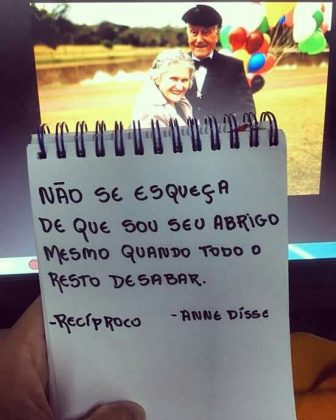 NÃO SE ESQUEÇA
DE QUE SOU SEU ABRIGO
MESMO QUANDO TODO O
RESTO DESABAR.
-RECÍPROCO -ANNE DÍSSE